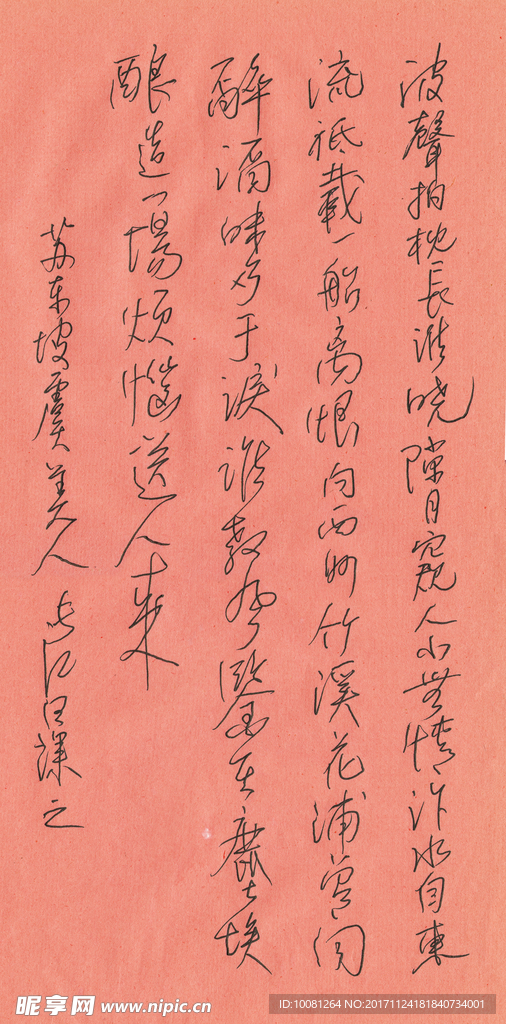 波聲拍枕長淮曉隙月窺人小無情汴水自東
流祗載一船离恨向西州竹溪花浦曾同
醉酒味多于淚誰教風鑒在塵埃
酿造一場烦惱送人来
苏东坡虞美人
昵享网 www.nipic.cn
ID:10081264 NO:20171124181840734001